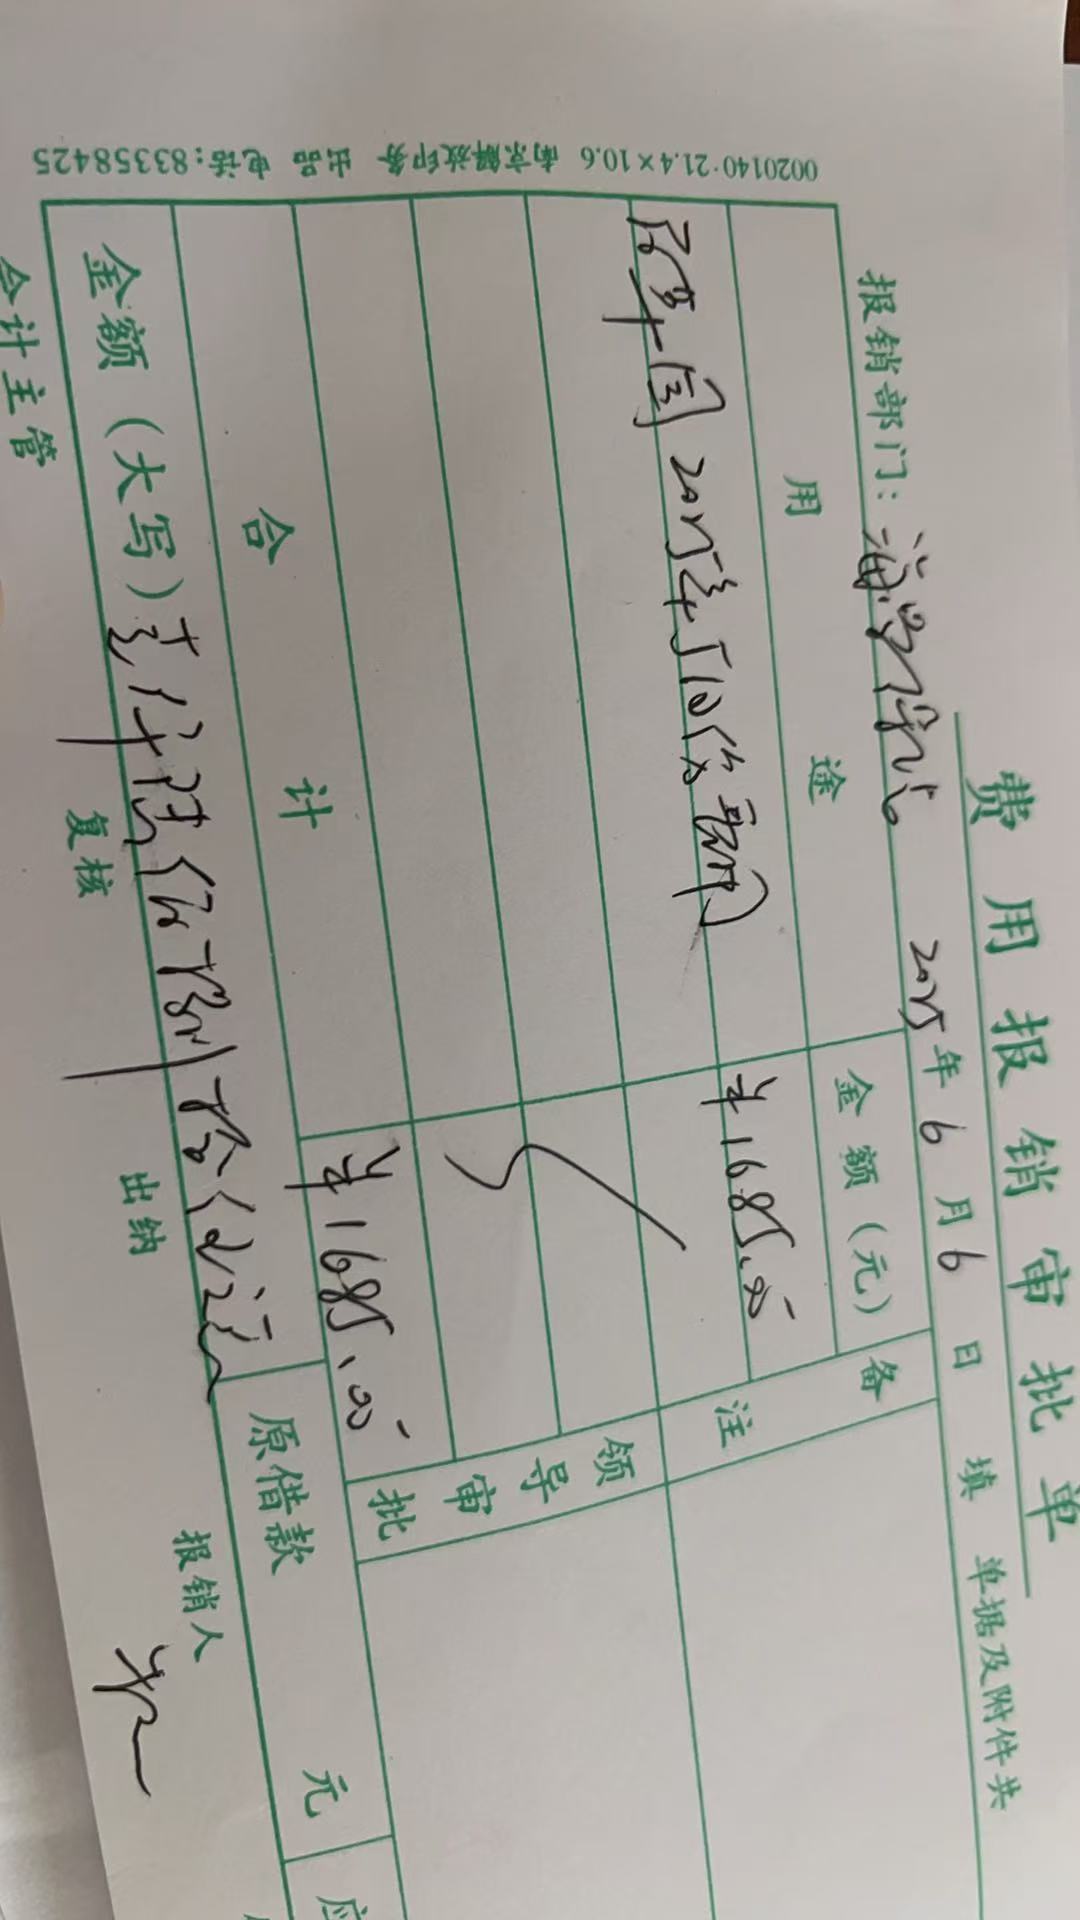 费用报销审批单
报销部门： 2025年6月6日填 单据及附件共
用途 金额（元） 备注
2025年5月份费用 ¥1685.00
领导审批
合计 ¥1685.00
金额（大写）壹仟陆佰捌拾伍元 原借款 元 应
会计主管 复核 出纳 报销人
0020140·21.4×10.6 南京解放印务 出品 电话:83358425